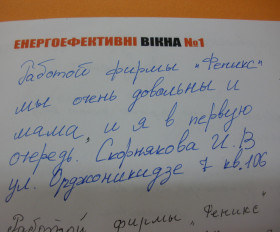 ЕНЕРГОЕФЕКТИВНІ ВІКНА №1
Работой фирмы "Феникс"
мы очень довольны и
мама, и я в первую
очередь. Скорнякова И.В
ул. Орджоникидзе 7 кв.106
Работой фирмы "Феникс"